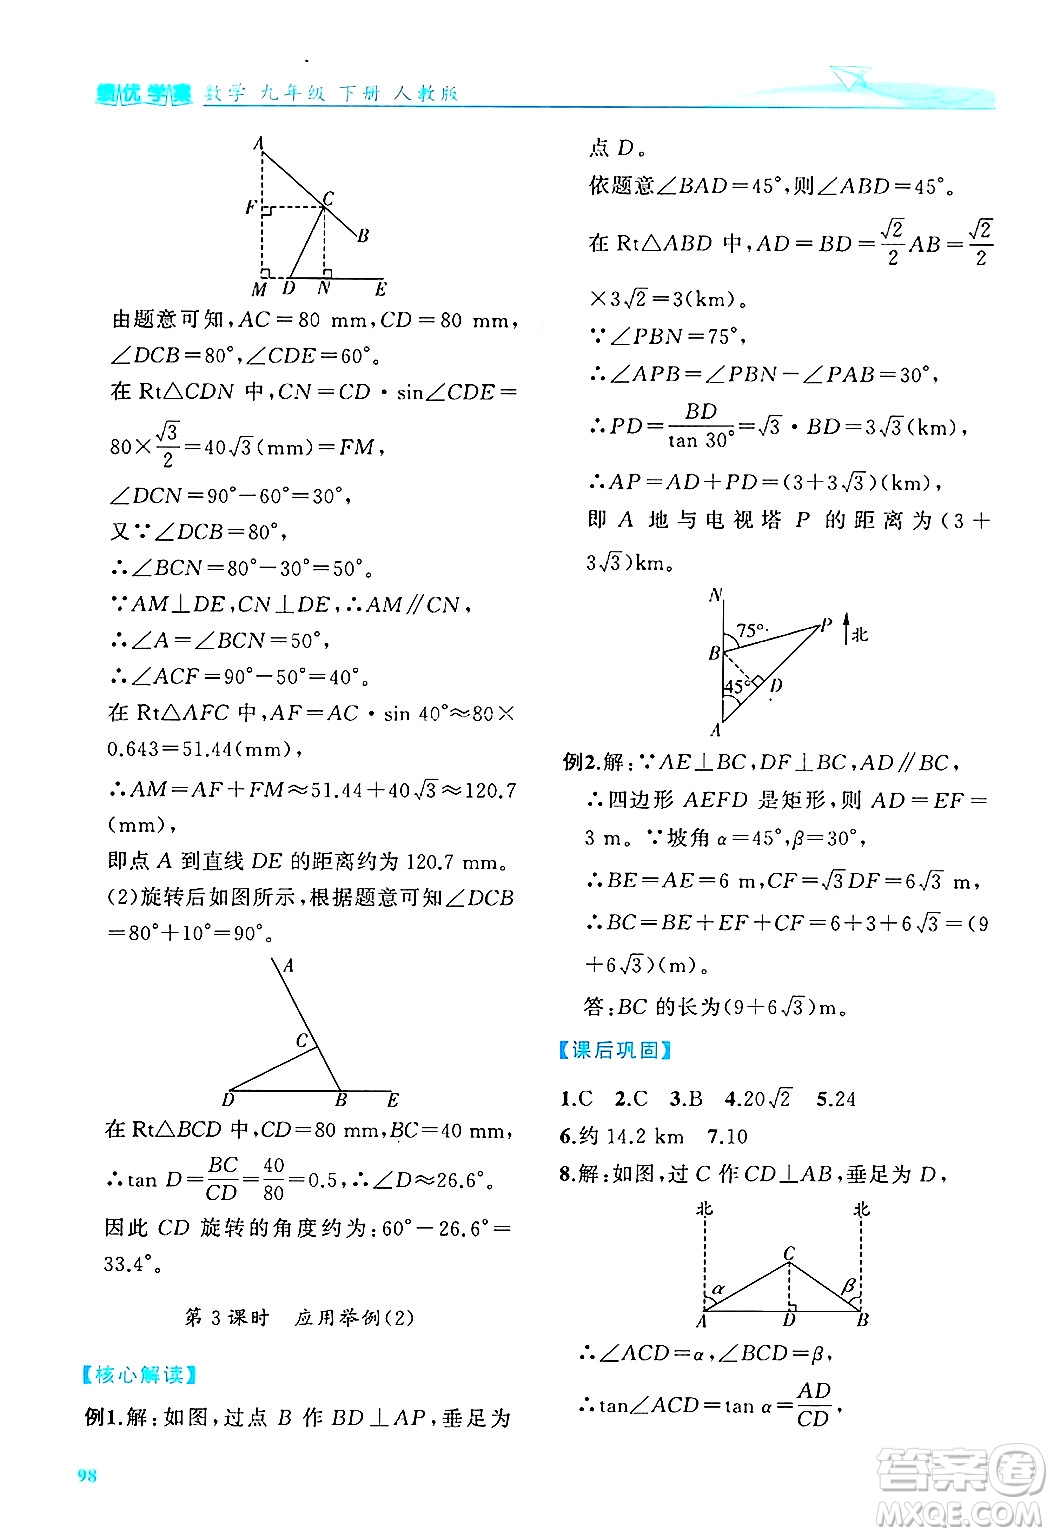 绩优学案 数学 九年级 下册 人教版
A
F
C
B
M D N E
由题意可知,AC=80 mm,CD=80 mm,
∠DCB=80°,∠CDE=60°。
在 Rt△CDN 中,CN=CD·sin∠CDE=
80×√3/2=40√3(mm)=FM,
∠DCN=90°-60°=30°,
又∵∠DCB=80°,
∴∠BCN=80°-30°=50°。
∵AM⊥DE,CN⊥DE,∴AM∥CN,
∴∠A=∠BCN=50°,
∴∠ACF=90°-50°=40°。
在 Rt△AFC 中,AF=AC·sin 40°≈80×
0.643=51.44(mm),
∴AM=AF+FM≈51.44+40√3≈120.7
(mm),
即点 A 到直线 DE 的距离约为 120.7 mm。
(2)旋转后如图所示,根据题意可知∠DCB
=80°+10°=90°。
A
C
D B E
在 Rt△BCD 中,CD=80 mm,BC=40 mm,
∴tan D=BC/CD=40/80=0.5,∴∠D≈26.6°。
因此 CD 旋转的角度约为:60°-26.6°=
33.4°。
第 3 课时 应用举例(2)
【核心解读】
例1.解:如图,过点 B 作 BD⊥AP,垂足为
点 D。
依题意∠BAD=45°,则∠ABD=45°。
在 Rt△ABD 中,AD=BD=√2/2 AB=√2/2
×3√2=3(km)。
∵∠PBN=75°,
∴∠APB=∠PBN-∠PAB=30°,
∴PD=BD/tan 30°=√3·BD=3√3(km),
∴AP=AD+PD=(3+3√3)(km),
即 A 地与电视塔 P 的距离为(3+
3√3)km。
N
75°
P
北
B
45°
D
A
例2.解:∵AE⊥BC,DF⊥BC,AD∥BC,
∴四边形 AEFD 是矩形,则 AD=EF=
3 m。∵坡角 α=45°,β=30°,
∴BE=AE=6 m,CF=√3DF=6√3 m,
∴BC=BE+EF+CF=6+3+6√3=(9
+6√3)(m)。
答:BC 的长为(9+6√3)m。
【课后巩固】
1.C 2.C 3.B 4.20√2 5.24
6.约 14.2 km 7.10
8.解:如图,过 C 作 CD⊥AB,垂足为 D,
北 北
C
α β
A D B
∴∠ACD=α,∠BCD=β,
∴tan∠ACD=tan α=AD/CD,
98
答案圈
MXQE.COM